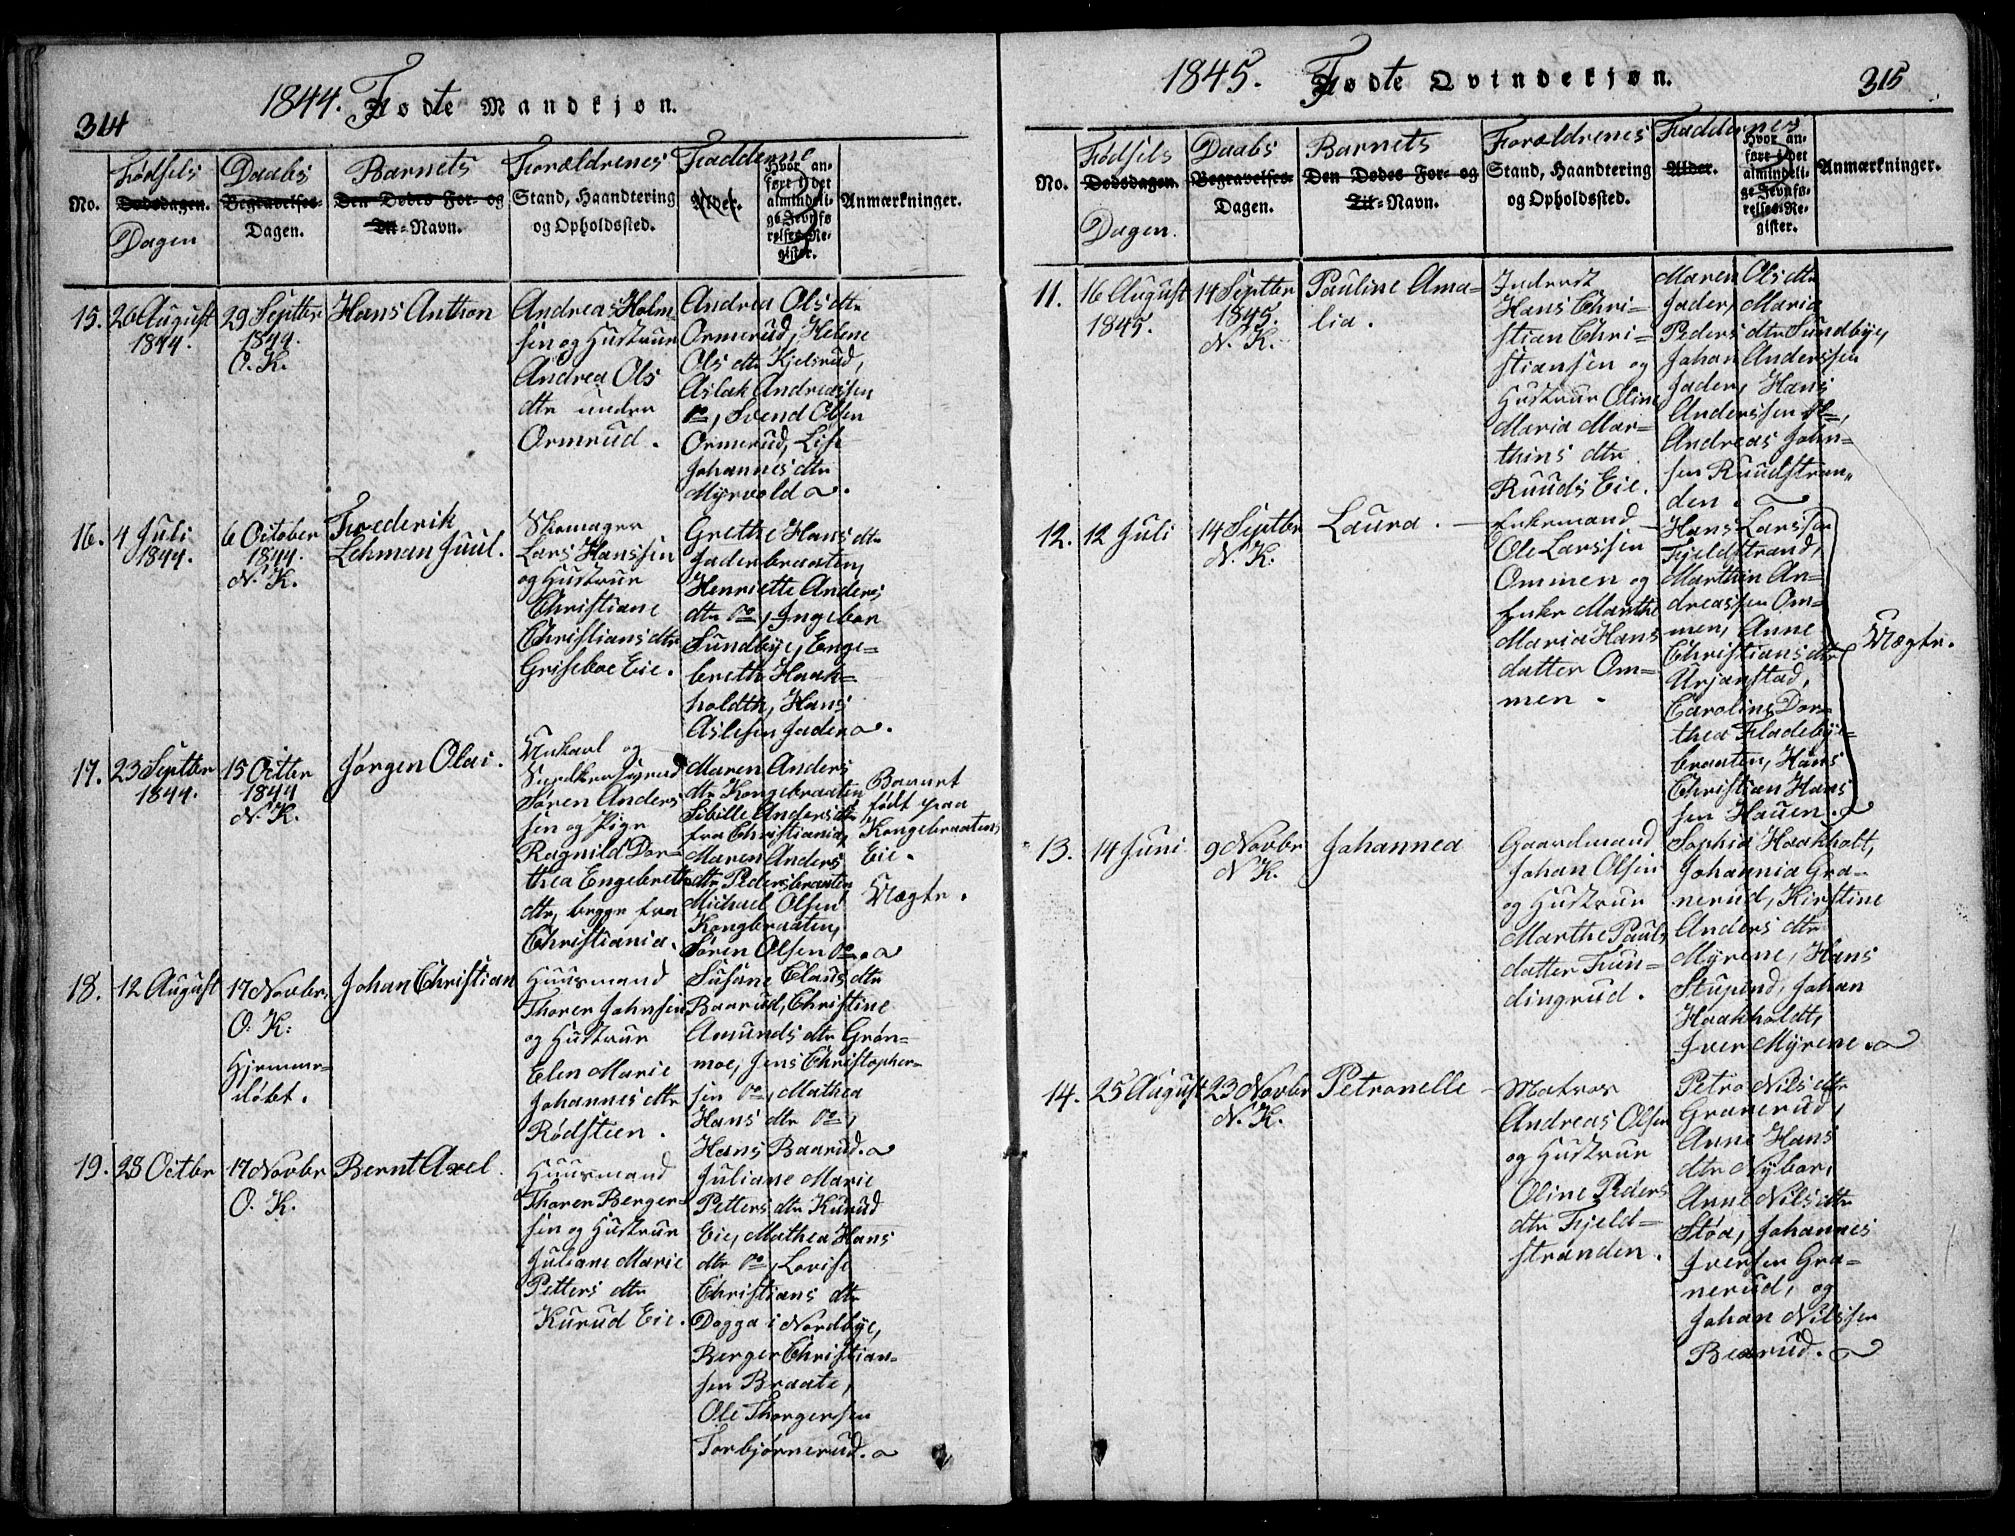 314
1844. Fødte Mandkjøn.
No.
Fødsels
Dødsdagen.
Dagen
Daabs
Begravelses-
Dagen.
Barnets
Den Dødes For- og
Til-Navn.
Forældrenes
Stand, Haandtering
og Opholdssted.
Fadderne
Alder.
Hvor an-
ført i det
almindeli-
ge Jevnfø-
relses-Re-
gister.
Anmærkninger.
15.
26 August
1844.
29 Septbr
1844.
O. K.
Hans Anthon
Andreas Holm-
sen og Hustrue
Andrea Ols
dtr under
Ormrud.
Andrea Ols dtr
Ormerud, Helene
Ols dtr Kjelsrud,
Aslak Andreassen
do, Svend Olsen
Ormerud, Lise
Johannes dtr
Myrvold.
16.
4 Juli
1844.
6 October
1844.
N. K.
Frederik
Lehman Juul.
Skomager
Lars Hanssen
og Hustrue
Christiane
Christians dtr
Griseboe Eie.
Grethe Hans dtr
Jaderbraaten,
Henriette Anders
dtr do, Ingebor
Sundbye, Enge-
breth Haak-
holdth, Hans
Aslesen Jader.
17.
23 Septbr
1844.
15 Octbr
1844
N. K.
Jørgen Olai.
Unkarl og
Søren Anders
sen og Pige
Ragnild Dor-
thea Engebreth
dtr, begge fra
Christiania.
Maren Anders
dtr Kongebraaten
Sibille Anders dtr
fra Christiania,
Maren Anders
dtr Pedersbraaten
Michael Olsen
Kongbraaten,
Søren Olsen do.
Barnet
født paa
Kongebraatens
Eie.
Uægte.
18.
12 August
17 Novbr.
O. K.
Hjemme-
døbt.
Johan Christian
Huusmand
Thorer Johnsen
og Hustrue
Elen Marie
Johannes dtr
Rødsteen.
Susane Claus dtr
Baarud, Christine
Amunds dtr Grøn-
moe, Jens Christopher-
sen do, Mathea
Hans dtr do,
Hans Baarud.
19.
28 Octbr
17 Novbr
O. K.
Bernt Axel.
Huusmand
Thorer Berger-
sen og Hustrue
Juliane Marie
Petters dtr
Kurud Eie.
Juliane Marie
Petters dtr Kurud
Eie, Mathea Hans
dtr do, Lovise
Christians dtr
Dogga i Nordbye,
Berger Christian-
sen Braate,
Ole Thorgersen
Torbjørnerud.
1845. Fødte Qvindekjøn.
315
No.
Fødsels
Dødsdagen.
Dagen.
Daabs
Begravelses-
Dagen.
Barnets
Den Dødes For- og
Til-Navn.
Forældrenes
Stand, Haandtering
og Opholdssted.
Faddernes
Alder.
Hvor an-
ført i det
almindeli-
ge Jevnfø-
relses-Re-
gister.
Anmærkninger.
11.
16 August
1845.
14 Septbr
1845.
N. K.
Pauline Ama-
lia.
Inderst
Hans Chri-
stian Chri-
stiansen og
Hustrue Oline
Maria Mar-
thins dtr
Ruuds Eie.
Maren Ols dtr
Jader, Maria
Peders dtr Sundbye,
Johan Anderssen
Jader, Hans
Anderssen do,
Andreas John-
sen Ruudstran-
den.
12.
12 Juli
14 Septbr
N. K.
Laura.
Enkemand
Ole Larssen
Ommen og
Enke Marthe
Maria Hans
datter Om-
men.
Hans Larssen
Fjeldstrand,
Marthin An-
dreassen Om-
men, Anne
Christians dtr
Urjanstad,
Caroline Dor-
thea Fladebye-
braaten, Hans
Christian Hans
sen Hauen.
Uægte.
13.
14 Juni
9 Novbr
N. K.
Johannea
Gaardmand
Johan Olsen
og Hustrue
Marthe Pauls
datter Fun-
dingrud.
Sophia Haakholt,
Johannia Gra-
nerud, Kirstine
Anders dtr
Myrene, Hans
Stupend, Johan
Haakholdt,
Iver Myrene.
14.
25 August
23 Novbr
N. K.
Petronelle
Matros
Andreas Olsen
og Hustrue
Oline Peders
dtr Fjeld-
stranden.
Petro Nils dtr
Granerud,
Anne Hans
dtr Nybor,
Anne Nils dtr
Støa, Johannes
Iversen Gra-
nerud, og
Johan Nilssen
Bearud.